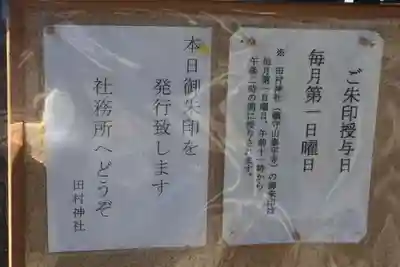 ご朱印授与日
毎月第一日曜日
※ 田村神社(鎭守山泰平寺)の御朱印は
毎月第一日曜日、午前十一時から
午後二時の間に授与されます。
本日御朱印を
発行致します
社務所へどうぞ
田村神社